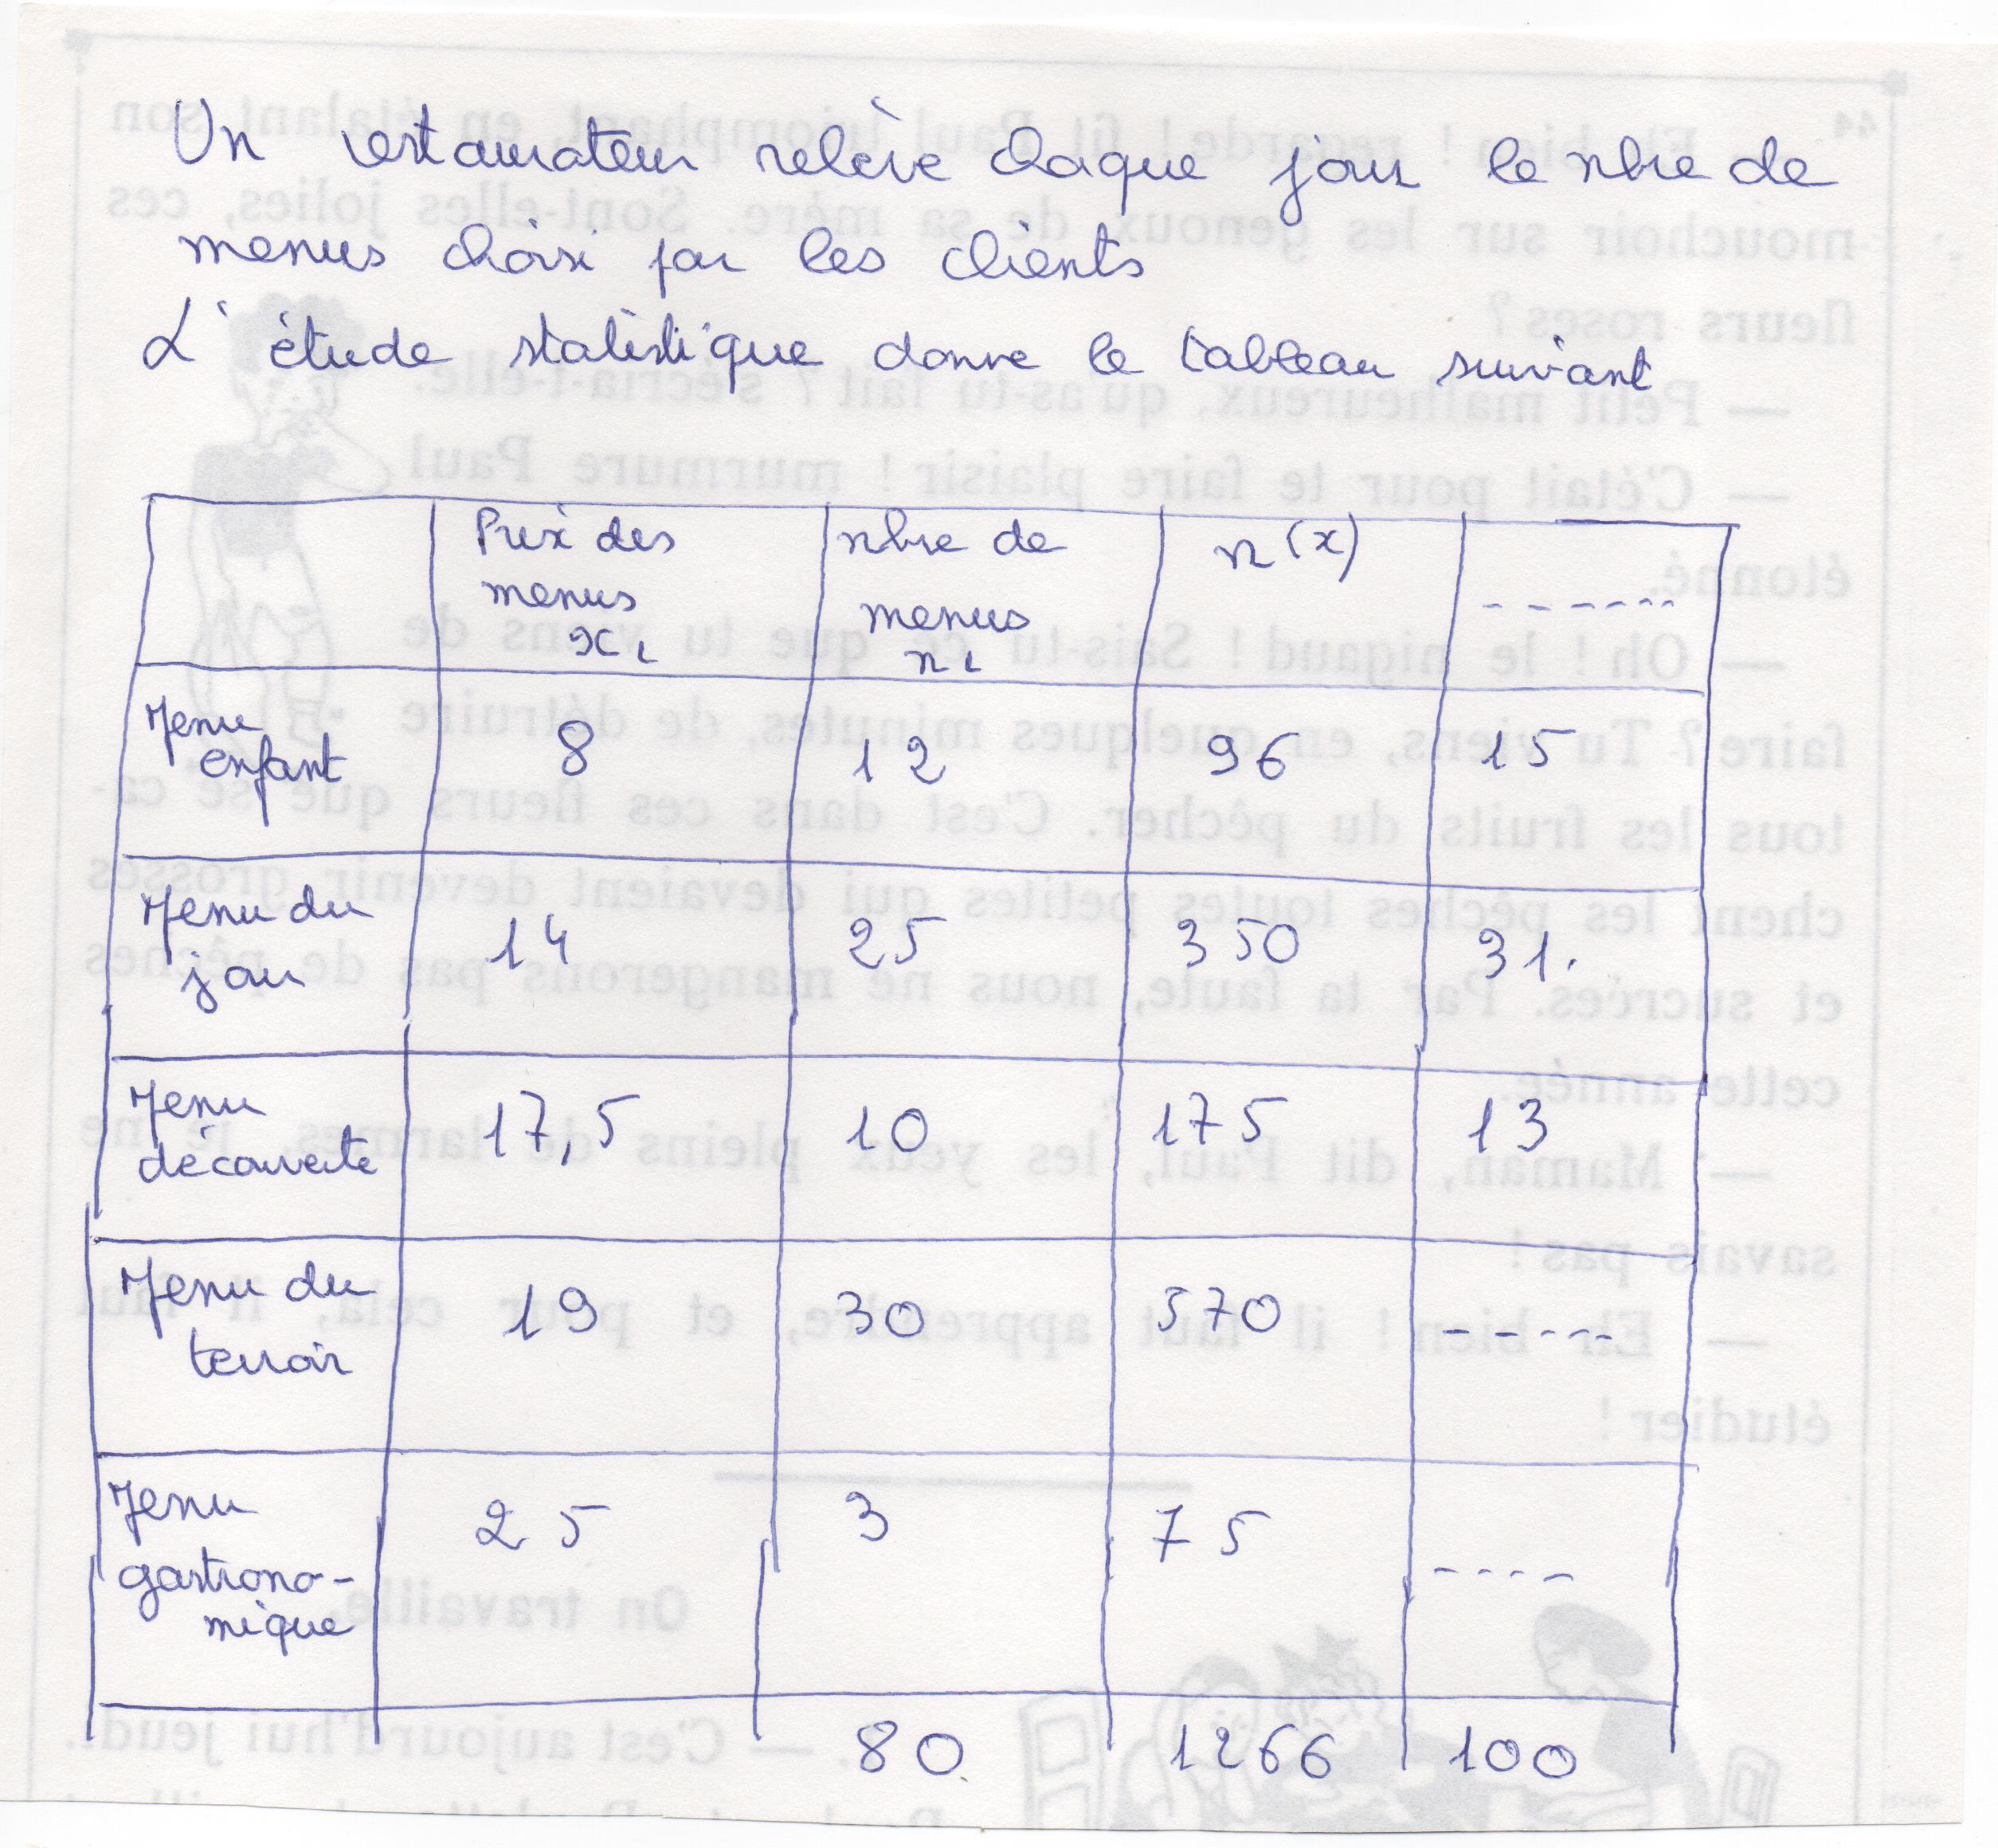 Un restaurateur relève chaque jour le nbre de
menus choisi par les clients
L'étude statistique donne le tableau suivant
Prix des menus xi | nbre de menus ni | n(x) | -------
Menu enfant | 8 | 12 | 96 | 15
Menu du jour | 14 | 25 | 350 | 31.
Menu découverte | 17,5 | 10 | 175 | 13
Menu du terroir | 19 | 30 | 570 | ------
Menu gastrono-mique | 25 | 3 | 75 | ----
80 | 1266 | 100
44
Eh bien ! regarde ! fit Paul triomphant, en étalant son
mouchoir sur les genoux de sa mère. Sont-elles jolies, ces
fleurs roses ?
— Petit malheureux, qu'as-tu fait ? s'écria-t-elle.
— C'était pour te faire plaisir ! murmure Paul
étonné.
— Oh ! le nigaud ! Sais-tu ce que tu viens de
faire ? Tu viens, en quelques minutes, de détruire
tous les fruits du pêcher. C'est dans ces fleurs que se ca-
chent les pêches toutes petites qui devaient devenir grosses
et sucrées. Par ta faute, nous ne mangerons pas de pêches
cette année.
— Maman, dit Paul, les yeux pleins de larmes, je ne
savais pas !
— Eh bien ! il faut apprendre, et pour cela, il faut
étudier !
On travaille.
— C'est aujourd'hui jeudi.